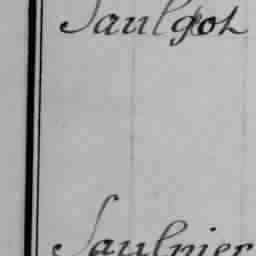 Saulgot
Saulnier